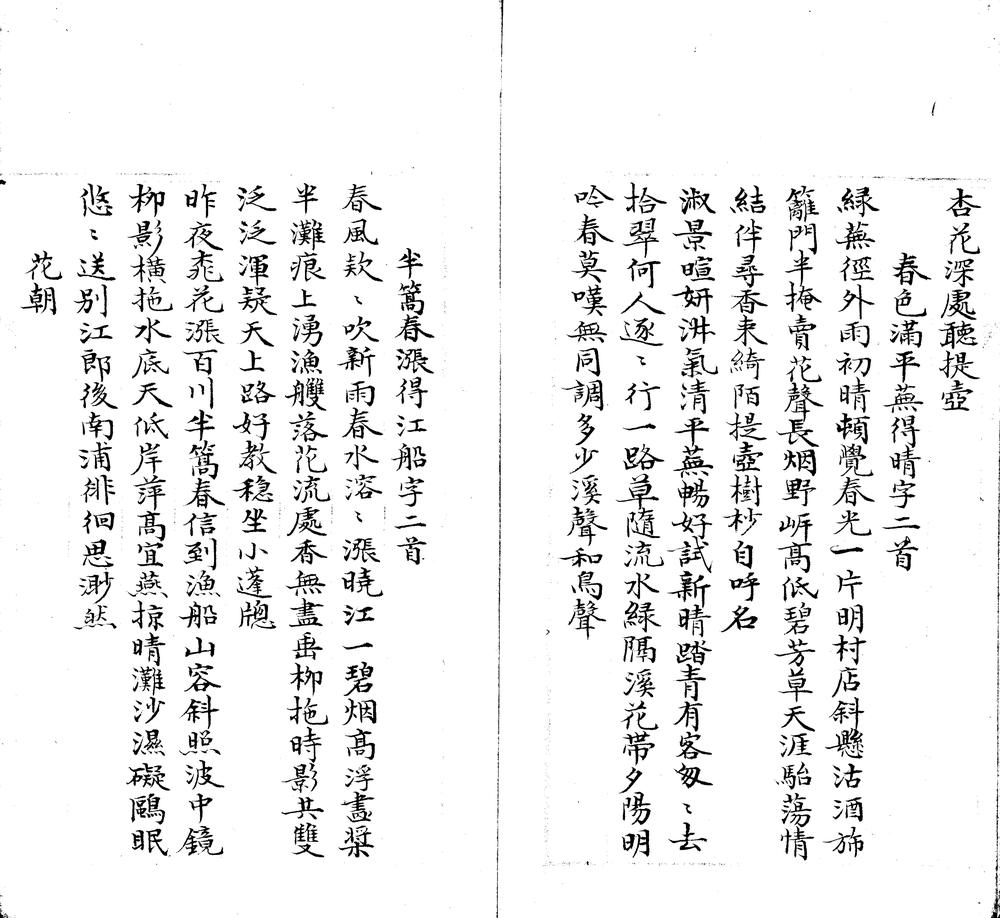 杏花深處聽提壺
春色滿平蕪得晴字二首
緑蕪徑外雨初晴頓覺春光一片明村店斜懸沽酒斾
籬門半掩賣花聲長烟野㟁高低碧芳草天涯駘蕩情
結伴尋香来綺陌提壺樹杪自呼名
淑景暄妍淑氣清平蕪暢好試新晴踏青有客匆〻去
拾翠何人逐〻行一路草隨流水緑隔溪花帶夕陽明
吟春莫嘆無同調多少溪聲和鳥聲
半篙春漲得江船字二首
春風欵〻吹新雨春水溶〻漲曉江一碧烟高浮畫槳
半灘痕上湧漁艭落花流處香無盡垂柳拖時影共雙
泛泛渾疑天上路好教穏坐小蓬牕
昨夜桃花漲百川半篙春信到漁船山容斜照波中鏡
柳影橫拖水底天低岸萍高宜燕掠晴灘沙濕礙鷗眠
悠〻送别江郎後南浦徘徊思渺然
花朝